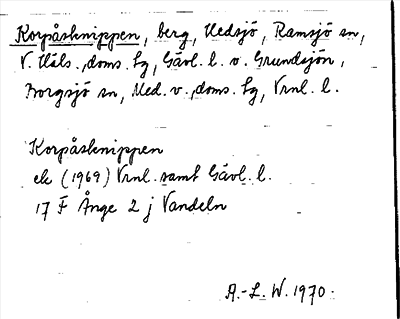 Korpåsknippen, berg, Hedsjö, Ramsjö sn,
V. Häls. doms. fg, Gävl. l. o. Grundsjön,
Borgsjö sn, Med. v. doms. fg, Vrnl. l.
Korpåsknippen
ek (1969) Vrnl. samt Gävl. l.
17 F Ånge 2 j Vandeln
A.-L. W. 1970.